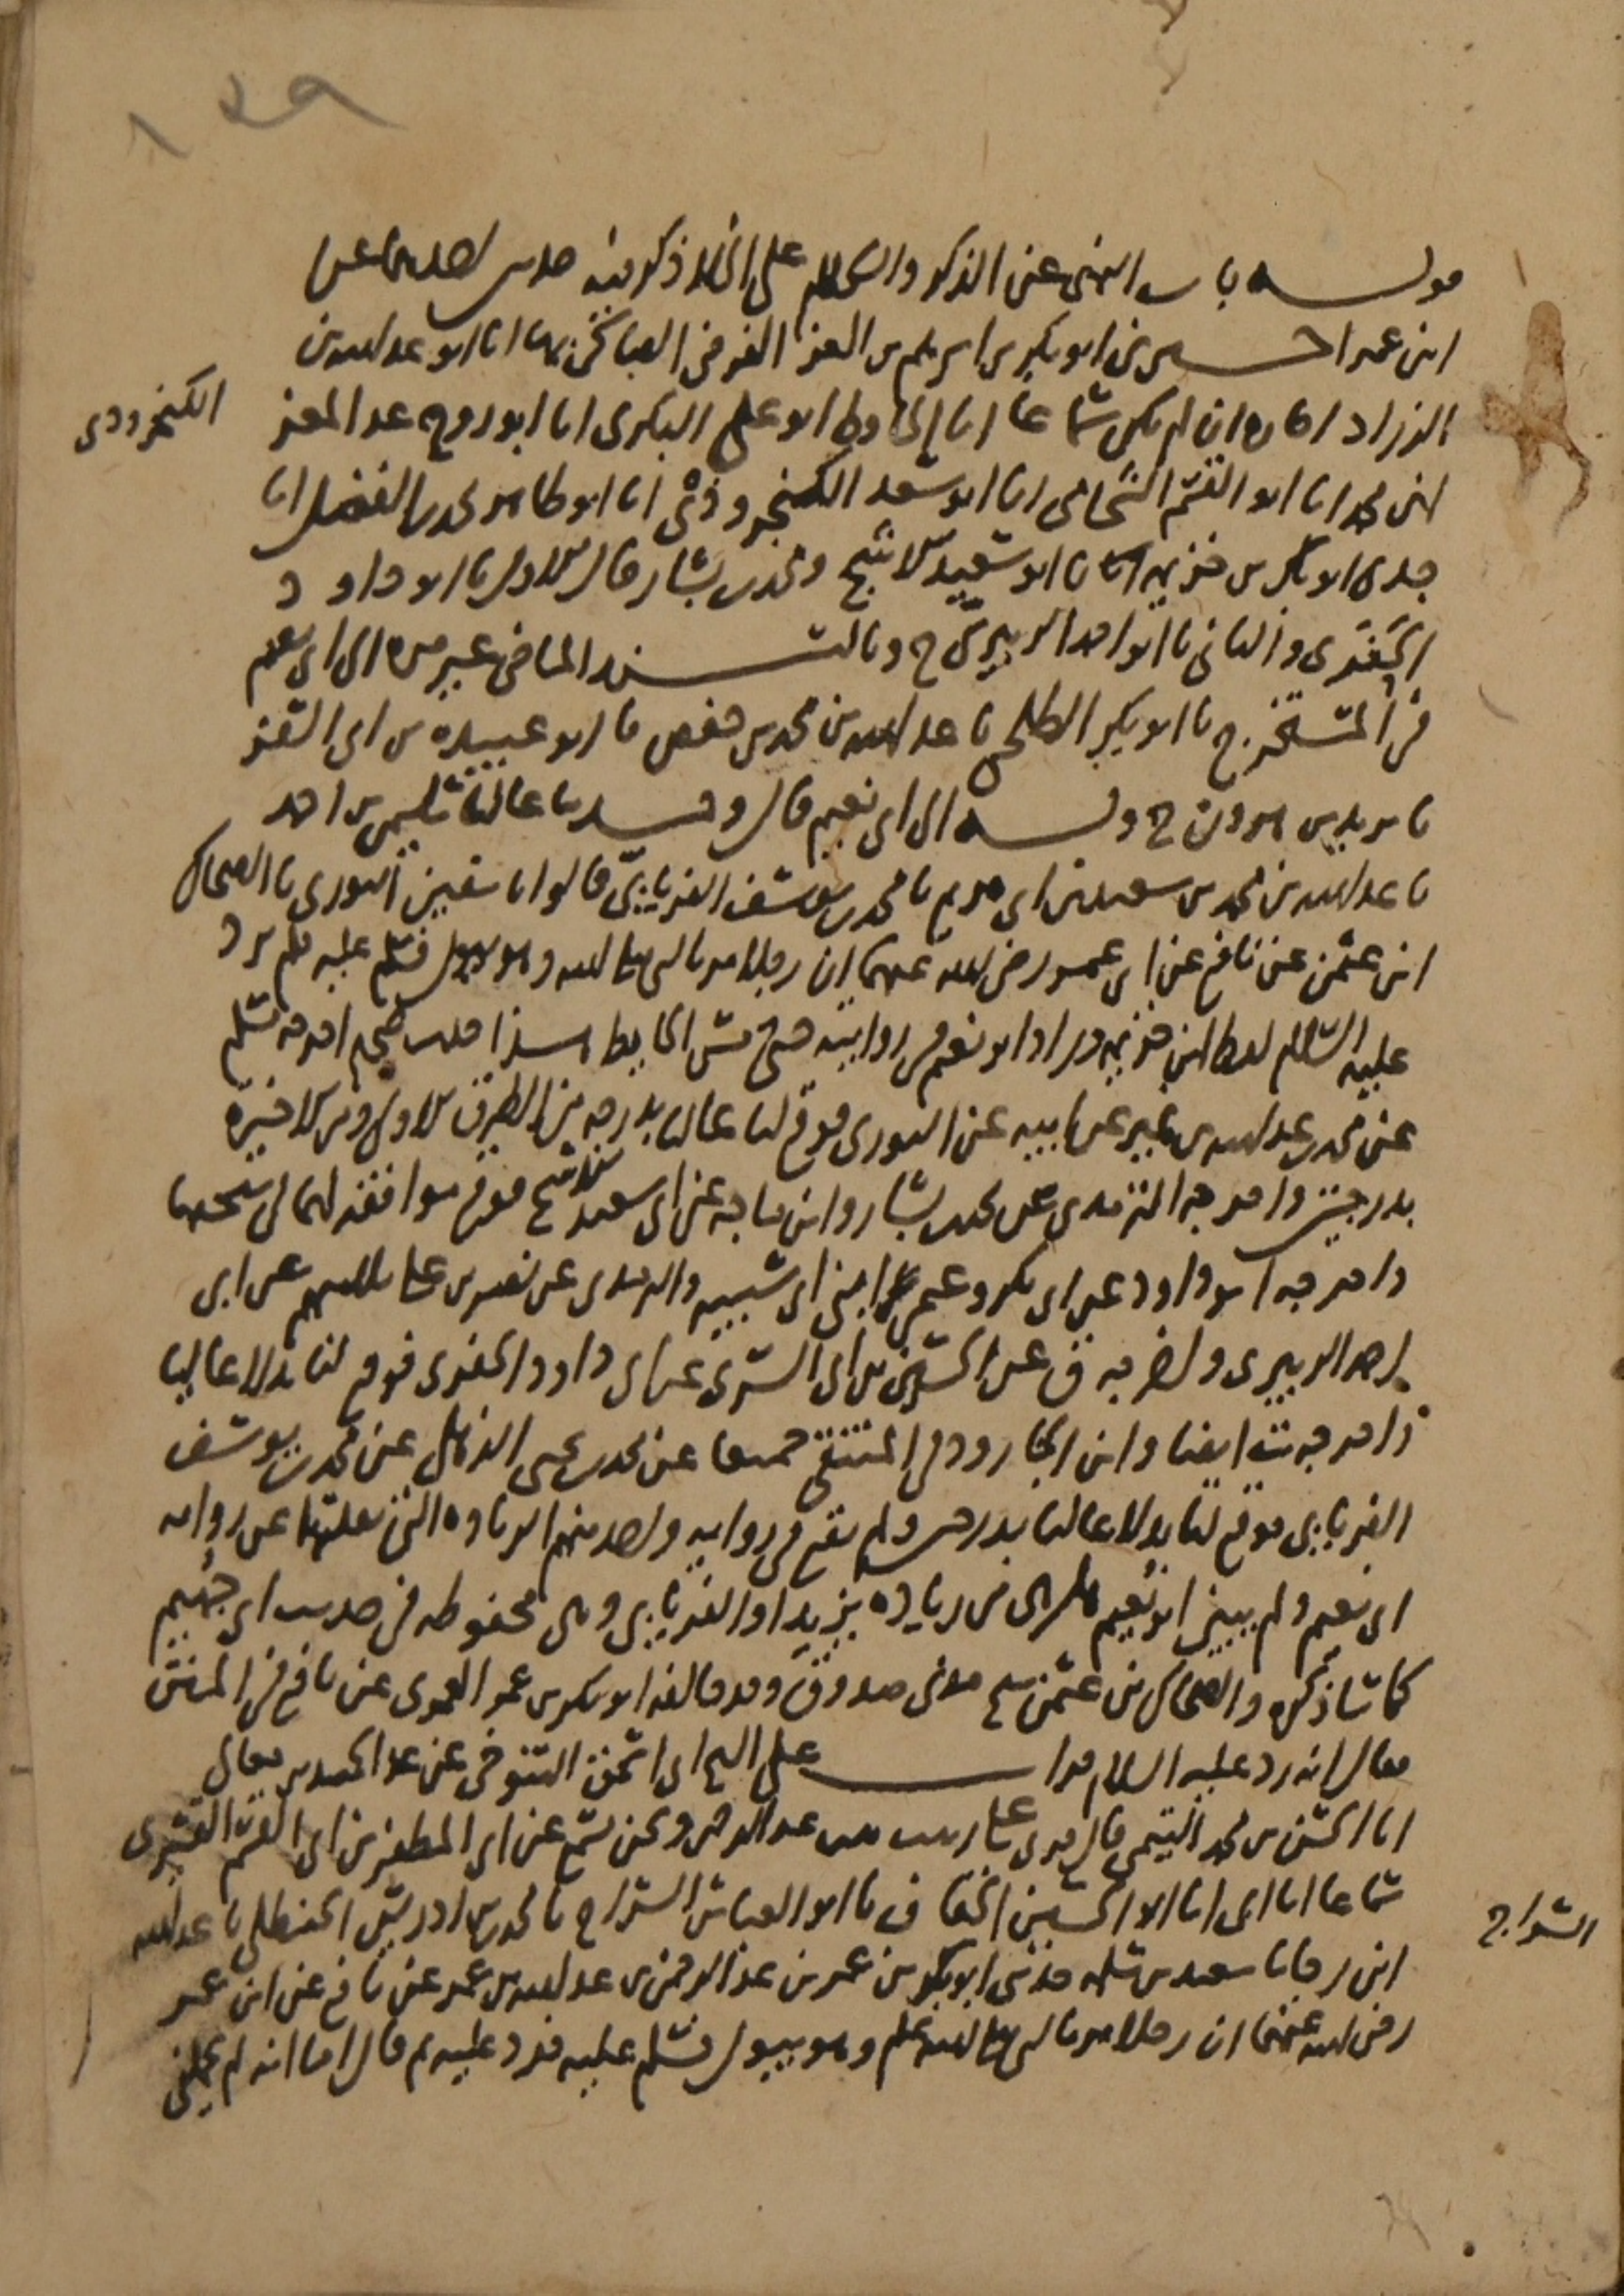 قوله باب النهي عن الذكر والسلام على الخلاء ذكر فيه حديث احدهما عن
ابن عمر اخبرني ابو بكر بن ابرهيم بن العز الفرضي الصالحي بها انا ابو عبد الله بن
الزراد اجازة ان لم يكن سماعا انا الحافظ ابو علي البكري انا ابو روح عبد المعز
الكنجرودي
ابن محمد انا ابو القسم الشحامي انا ابو سعد الكنجروذي انا ابو طاهر محمد بن الفضل انا
جدي ابو بكر بن خزيمة نا ابو سعيد الاشج ومحمد بن بشار قال الاول نا ابو داود
الحفري والثاني نا ابو احمد الزبيري ح وبالسند الماضي غير مرة الى ابي نعيم
في المستخرج نا ابو بكر الطلحي نا عبد الله بن محمد بن حفص نا ابو عبيدة بن ابي السفر
نا زيد بن هرون ح وبه الى ابي نعيم قال وحدثنا عاليا سليمن بن احمد
نا عبد الله بن محمد بن سعيد بن ابي مريم نا محمد بن يوسف الفريابي قالوا نا سفين الثوري نا الضحاك
ابن عثمن عن نافع عن ابن عمر رضي الله عنهما ان رجلا مر بالنبي صلى الله وهو يبول فسلم عليه فلم يرد
عليه السلام لفظ ابن خزيمة وزاد ابو نعيم في روايته حتى مس الحايط هذا حديث صحيح اخرجه مسلم
عن محمد بن عبد الله بن نمير عن ابيه عن الثوري فوقع لنا عاليا بدرجة من الطرق الاولى ومن الاخيرة
بدرجتين واخرجه الترمذي عن محمد بن بشار وابن ماجه عن ابي سعيد الاشج فوقع موافقة لهما في شيخيهما
واخرجه ابو داود عن ابي بكر وعثمن ابني ابي شيبة والترمذي عن نصر بن علي كلهم عن ابي
احمد الزبيري واخرجه ق عن الحسين بن ابي السري عن ابي داود الحفري فوقع لنا بدلا عاليا
واخرجه ت ايضا وابن الجارود في المنتقى جميعا عن محمد بن يحيى الذهلي عن محمد بن يوسف
الفريابي فوقع لنا بدلا عاليا بدرجتين ولم يقع في رواية واحد منهم الزيادة التي نقلتها عن رواية
ابي نعيم ولم يبين ابو نعيم هل هي من زيادة يزيد او الفريابي وهي محفوظة في حديث ابي جهيم
كما ساذكره والضحاك بن عثمن شيخ مدني صدوق وقد خالفه ابو بكر بن عمر العمري عن نافع في المتن
فقال انه رد عليه السلام قرات على الشيخ ابي اسحق التنوخي عن عبد الحميد بن
انا الحسن بن محمد التيمي قال قري على زينب بنت عبد الرحمن ونحن نسمع عن ابي المظفر بن ابي القسم القشيري
سماعا انا ابي انا ابو الحسين الخفاف نا ابو العباس السراج نا محمد بن ادريس الحنظلي نا عبد الله
السراج
ابن رجا نا سعيد بن سلمة حدثني ابو بكر بن عمر بن عبد الرحمن بن عبد الله بن عمر عن نافع عن ابن عمر
رضي الله عنهما ان رجلا مر بالنبي صلى الله عليه وسلم وهو يبول فسلم عليه فرد عليه ثم قال اما انه لم يحملني